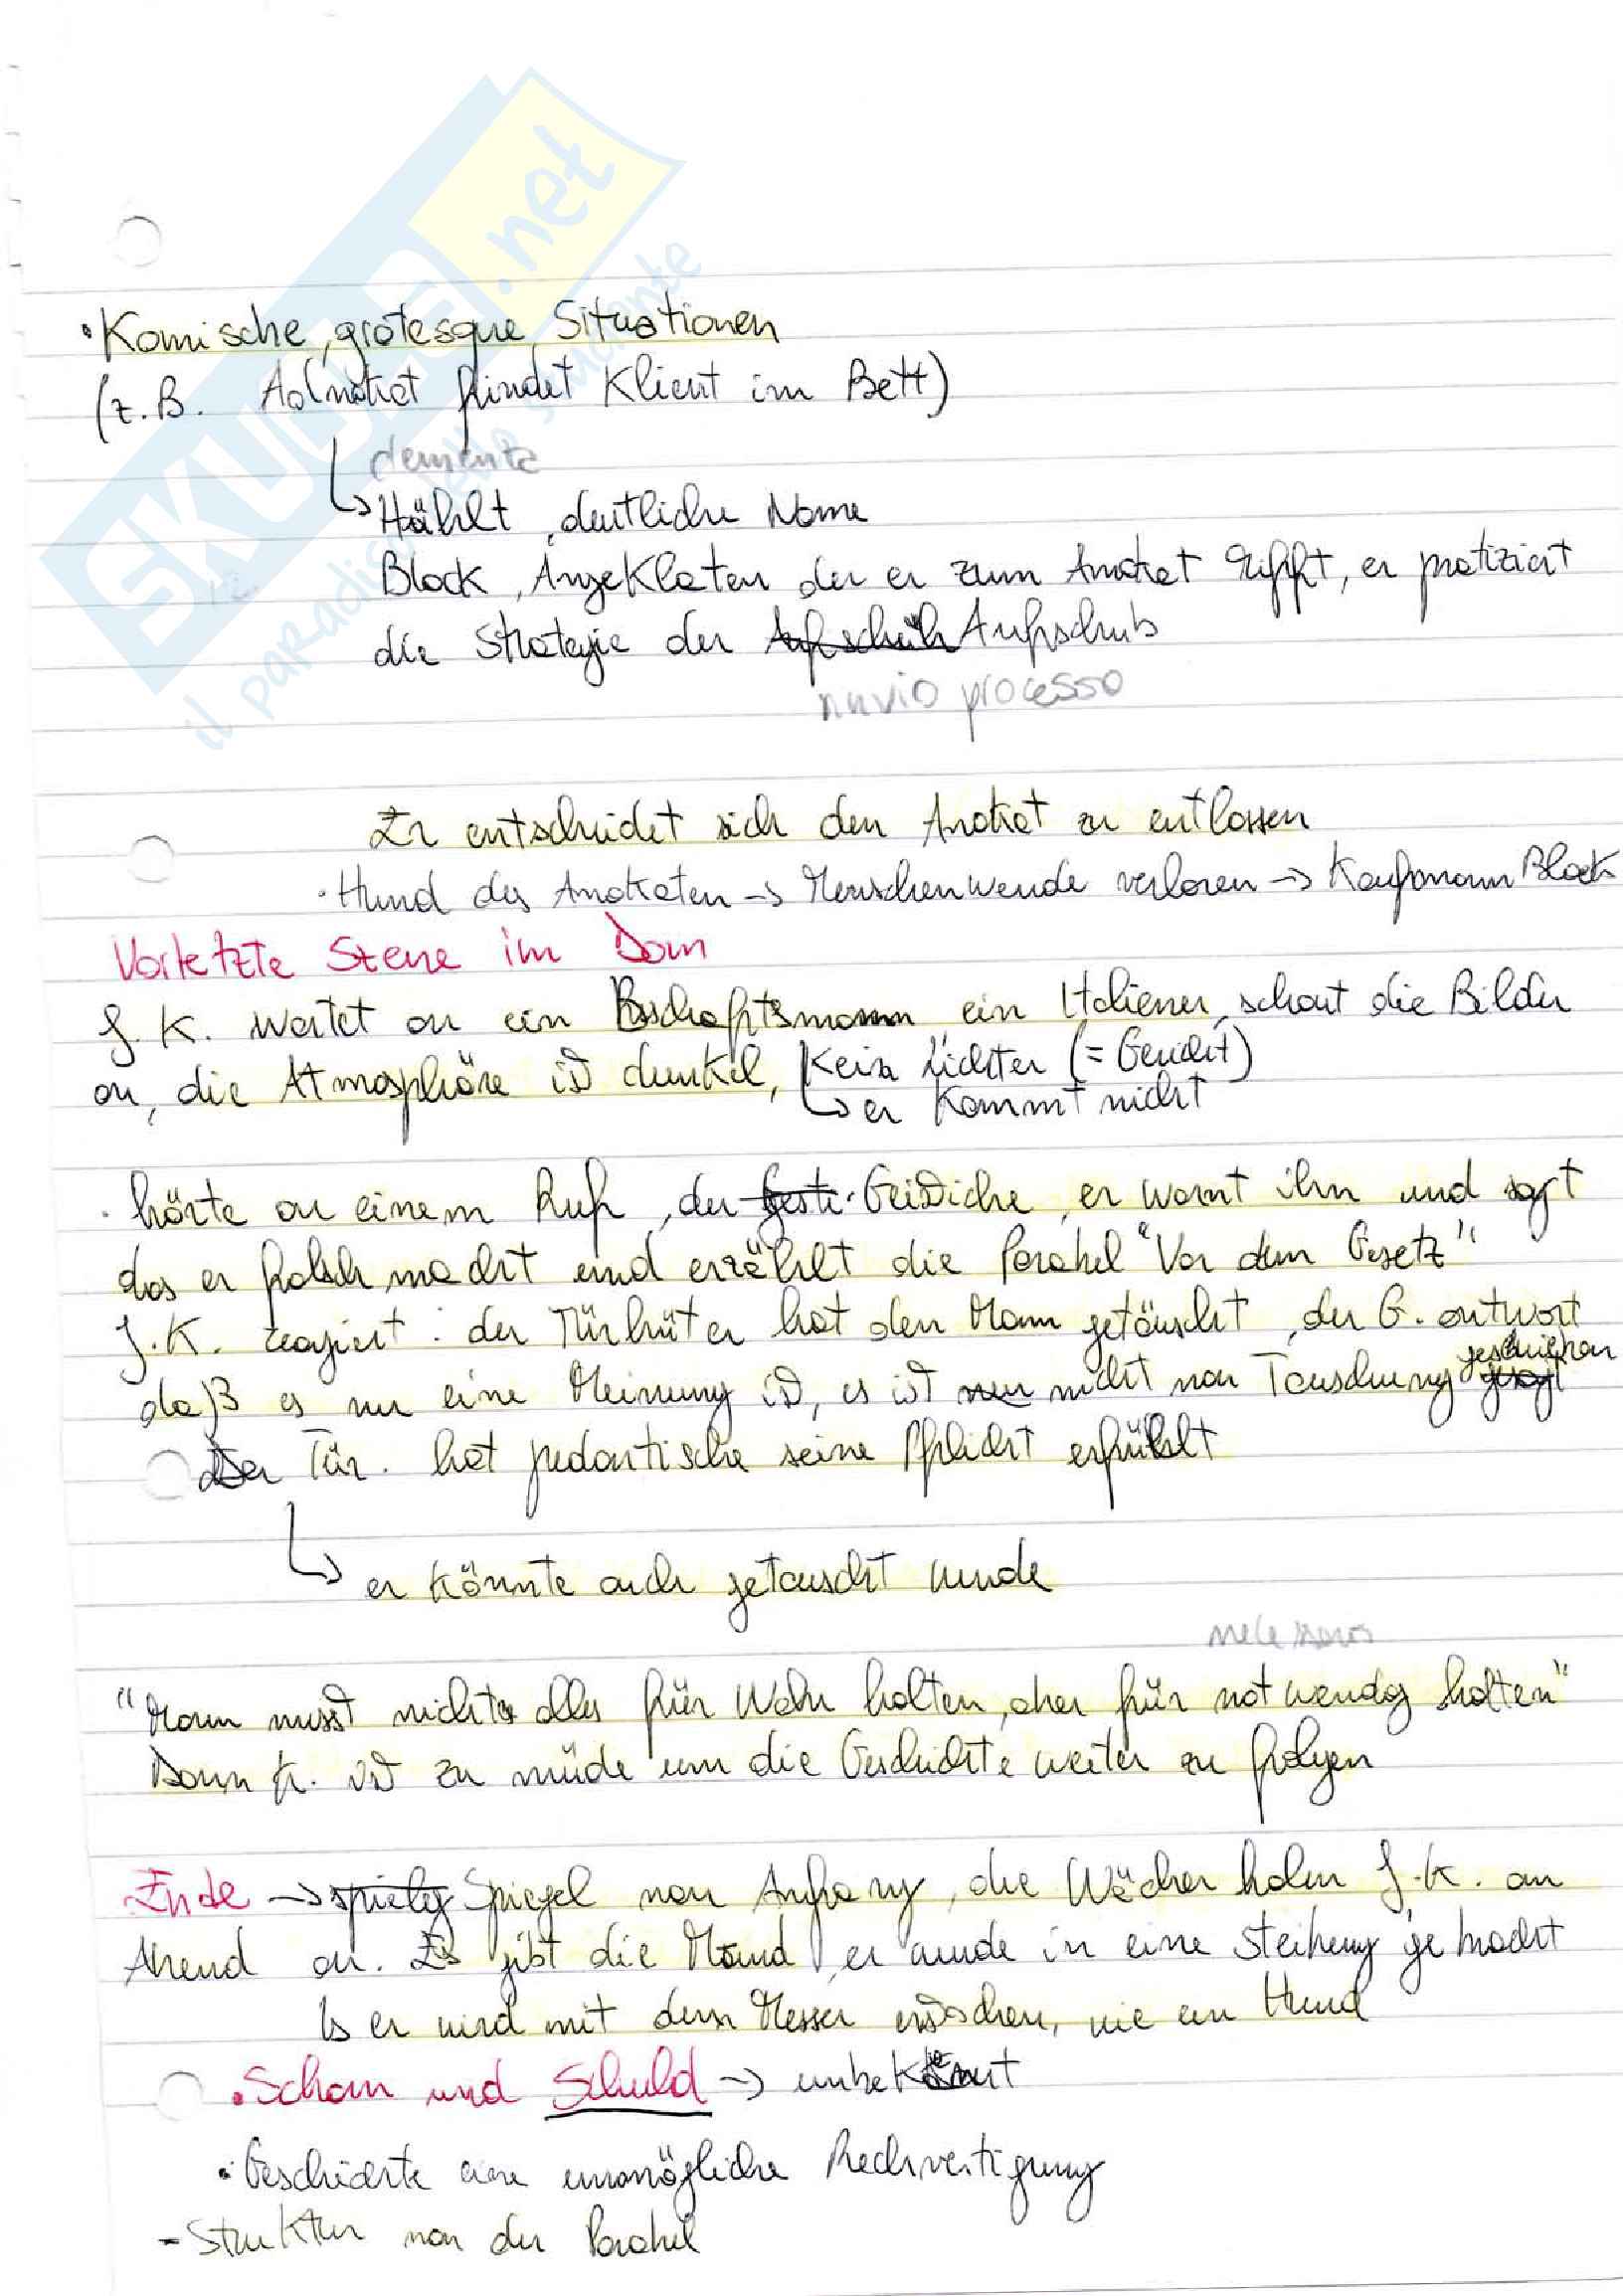 SKUOLA.net
il paradiso dello studente
• Komische, grotesque Situationen
(z.B. Advokat findet Klient im Bett)
↳ Hählt, deutliche Name
Block, Angeklaten der er zum Anwkat trifft, er pratiziert
die Strategie der Aufschub
rinvio processo
Er entscheidet sich den Anwkat zu entlassen
• Hund des Anwkaten → Menschenwende verloren → Kaufmann Block
Vorletzte Szene im Dom
J. K. wartet an ein Geschäftsmann, ein Italiener, schaut die Bilder
an, die Atmosphäre ist dunkel, kein Lichter (= Gericht)
↳ er kommt nicht
• hörte an einem Ruf, der Geistliche, er warnt ihn und sagt
das er falsch macht und erzählt die Parabel "Vor dem Gesetz"
J.K. reagiert: der Türhüter hat den Mann getäuscht, der G. antwort
daß es nur eine Meinung ist, es ist nicht von Tauschung geschrieben
Der Tür. hat pedantische seine Pflicht erfühlt
↳ er könnte auch getauscht wurde
"Mann musst nicht alles für Wahr halten, aber für notwendig halten"
Dann K. ist zu müde um die Geschichte weiter zu folgen
Ende → Spiegel von Anfang, die Wächer holen J.K. an
Abend an. Es gibt die Mond, er wurde in eine Steibung gebracht
↳ er wird mit dem Messer erstochen, wie ein Hund
• Scham und Schuld → unbekannt
• Geschichte eine unmögliche Rechvertigung
- Struktur von der Parabel